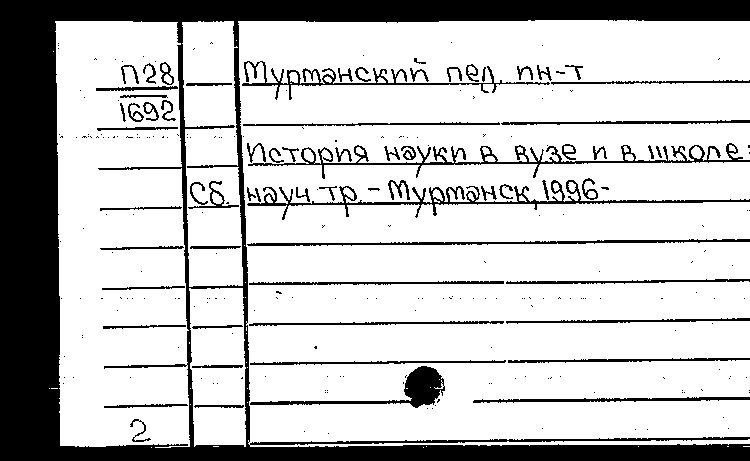 П28 Мурманский пед. ин-т
1692
История науки в вузе и в школе:
Сб. науч. тр. - Мурманск, 1996-
2